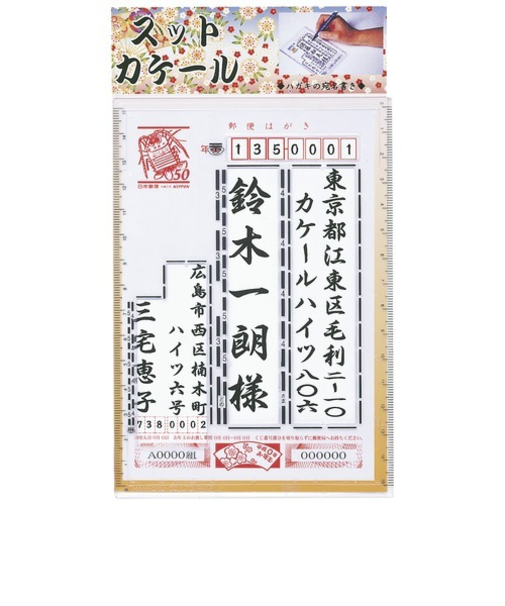 スット
カケール
◆ハガキの宛名書き◆
郵便はがき
年賀
1350001
50
日本郵便
NIPPON
東京都江東区毛利二-一〇
カケールハイツ八〇六
鈴木一朗様
広島市西区楠木町
ハイツ六号
三宅恵子
7380002
A0000組
000000